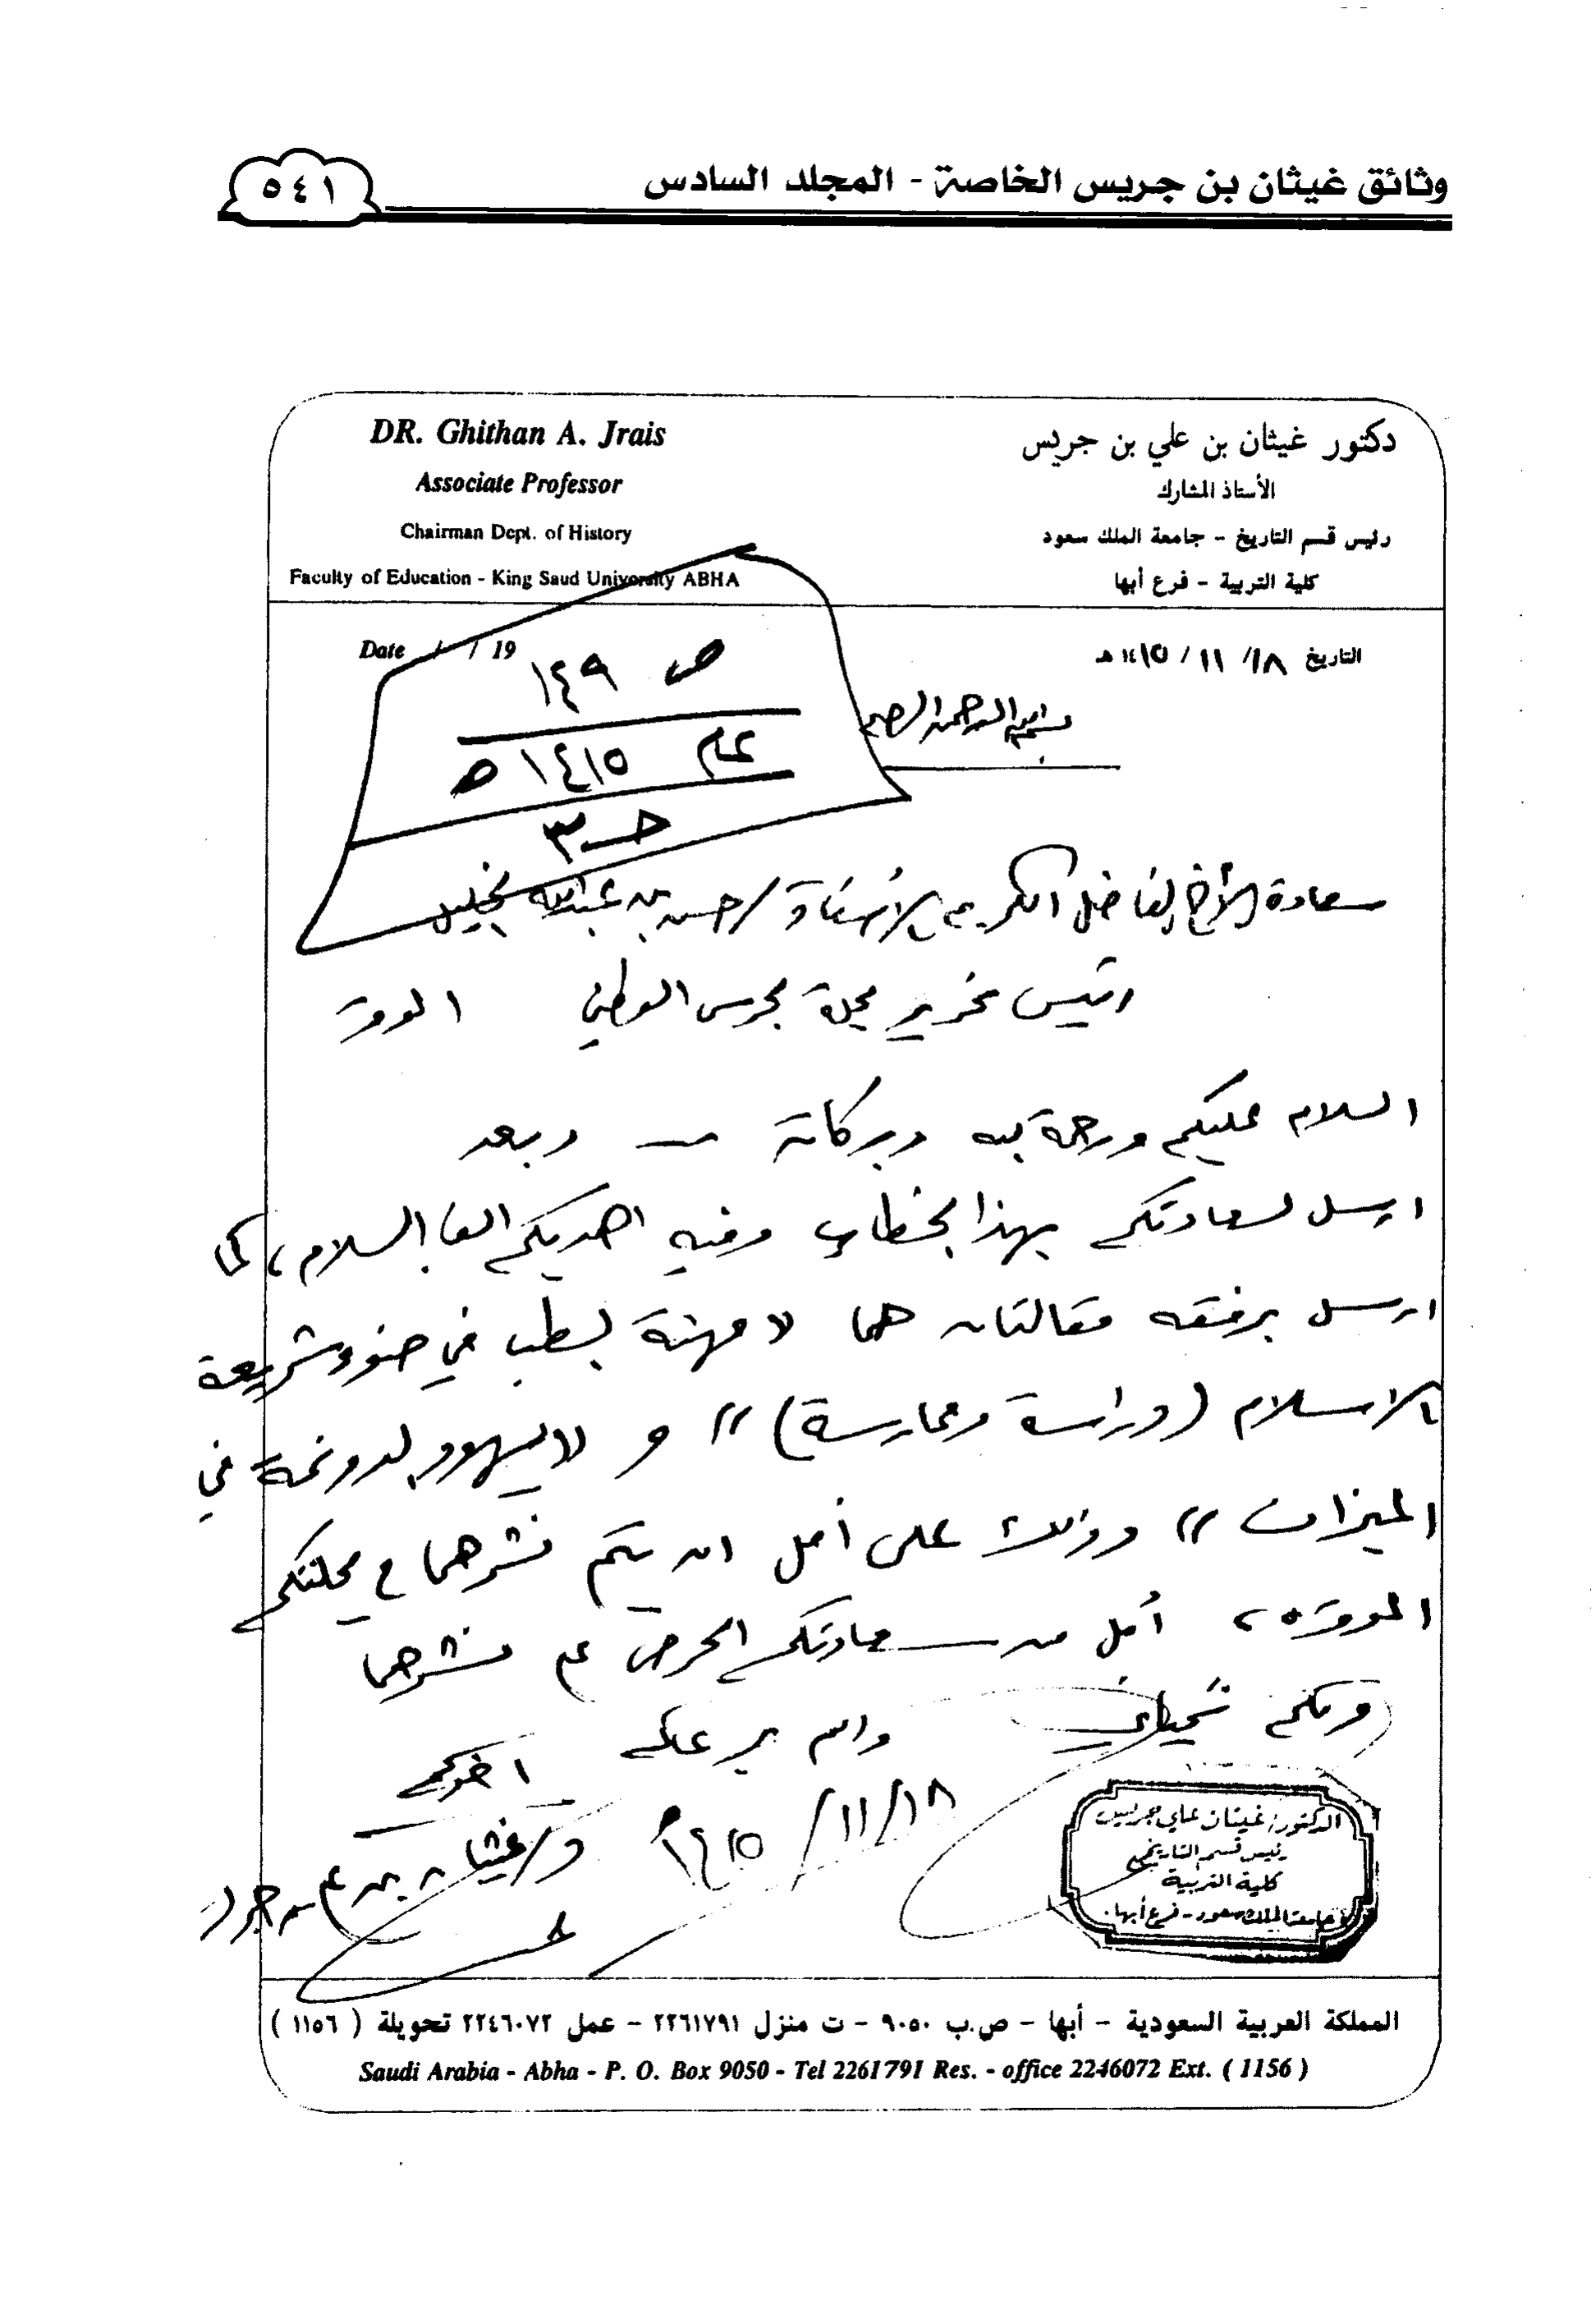 وثائق غيثان بن جريس الخاصة - المجلد السادس
٥٤١
DR. Ghithan A. Jrais
Associate Professor
Chairman Dept. of History
Faculty of Education - King Saud University ABHA
دكتور غيثان بن علي بن جريس
الأستاذ المشارك
رئيس قسم التاريخ - جامعة الملك سعود
كلية التربية - فرع أبها
Date / / 19
التاريخ ١٨/ ١١ / ١٤١٥ هـ
ص ١٤٩
عام ١٤١٥ هـ
حـ ٣
بسم الله الرحمن الرحيم
سعادة الأخ الفاضل الكريم الأستاذ / حسن بن عبدالله
رئيس تحرير مجلة الحرس الوطني الموقر
السلام عليكم ورحمة الله وبركاته - وبعد
ارسل لسعادتكم بهذا الخطاب وفيه اهديكم الف السلام ، كما
ارسل برفقه مقالتان هما " مهنة الطب في ضوء شريعة
الاسلام (دراسة وممارسة) " و " اليهود الدونمة في
الميزان " وذلك على أمل ان يتم نشرهما في مجلتكم
الموقرة ، أمل من سعادتكم الحرص على نشرهما
ولكم تحياتي والله يرعاكم
اخوكم
١٨/ ١١/ ١٤١٥ هـ
د/ غيثان بن علي بن جريس
الدكتور/ غيثان علي جريس
رئيس قسم التاريخ
كلية التربية
جامعة الملك سعود - فرع أبها
المملكة العربية السعودية - أبها - ص.ب ٩٠٥٠ - ت منزل ٢٢٦١٧٩١ - عمل ٢٢٤٦٠٧٢ تحويلة ( ١١٥٦ )
Saudi Arabia - Abha - P. O. Box 9050 - Tel 2261791 Res. - office 2246072 Ext. ( 1156 )